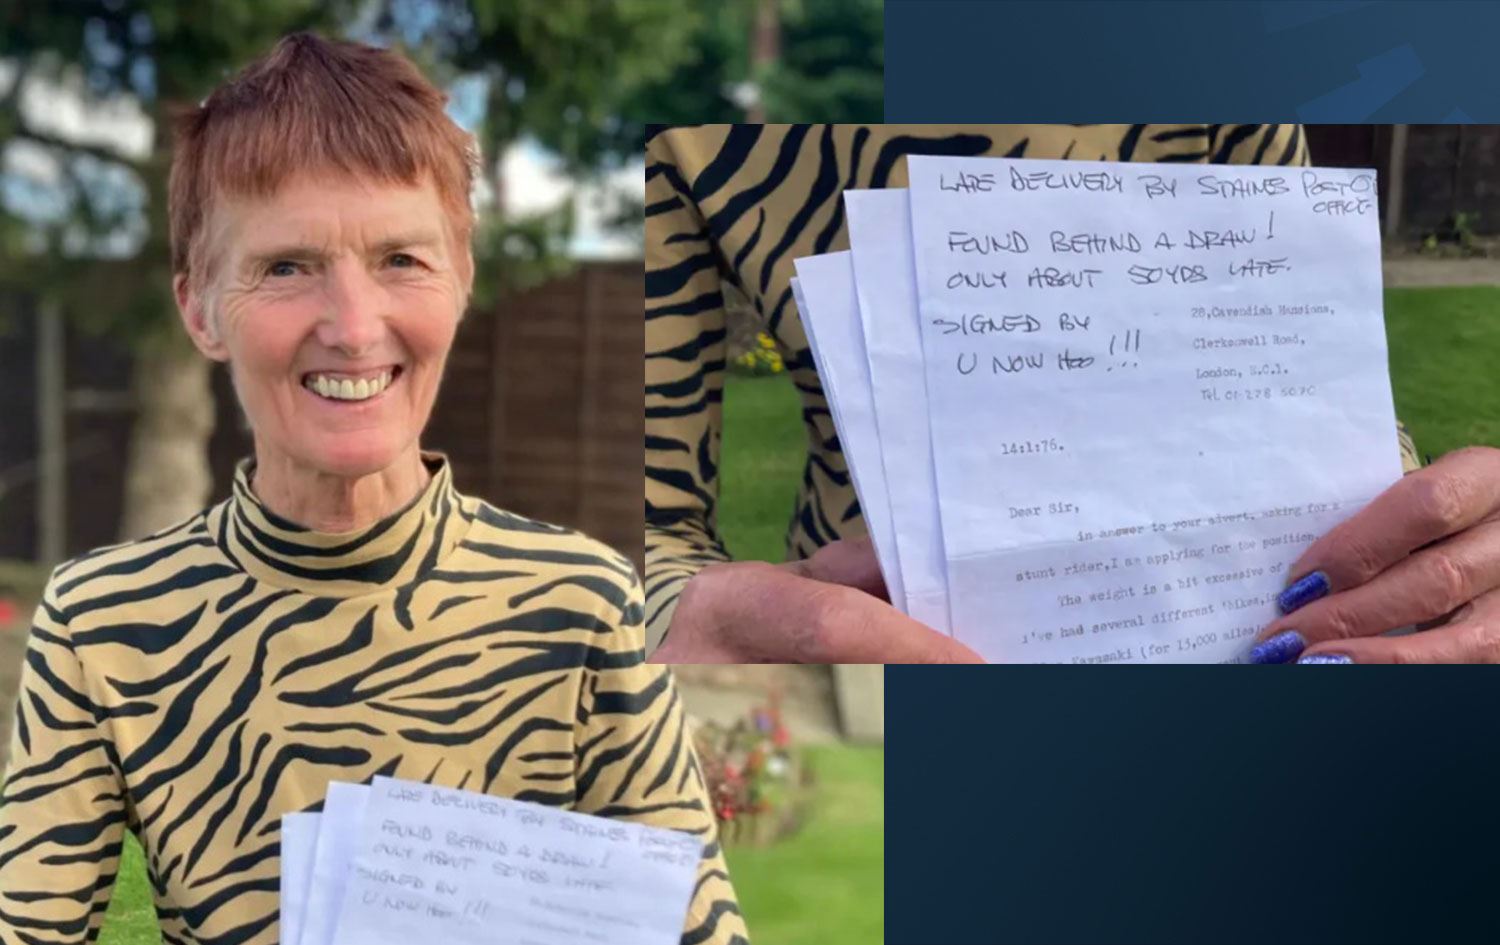 LATE DELIVERY BY STAINES POST
OFFICE
FOUND BEHIND A DRAW!
ONLY ABOUT 50YRS LATE.
SIGNED BY
U NOW HOO !!!
28,Cavendish Mansions,
Clerkenwell Road,
London, E.C.1.
Tel. 01 278 5070
14:1:76.
Dear Sir,
in answer to your advert, asking for a
stunt rider,I am applying for the position.
The weight is a bit excessive of
i've had several different 'bikes,in
Kawasaki (for 15,000 miles)
LATE DELIVERY BY STAINES
OFFICE
FOUND BEHIND A DRAW!
ONLY ABOUT 50YRS LATE
SIGNED BY
U NOW HOO !!!